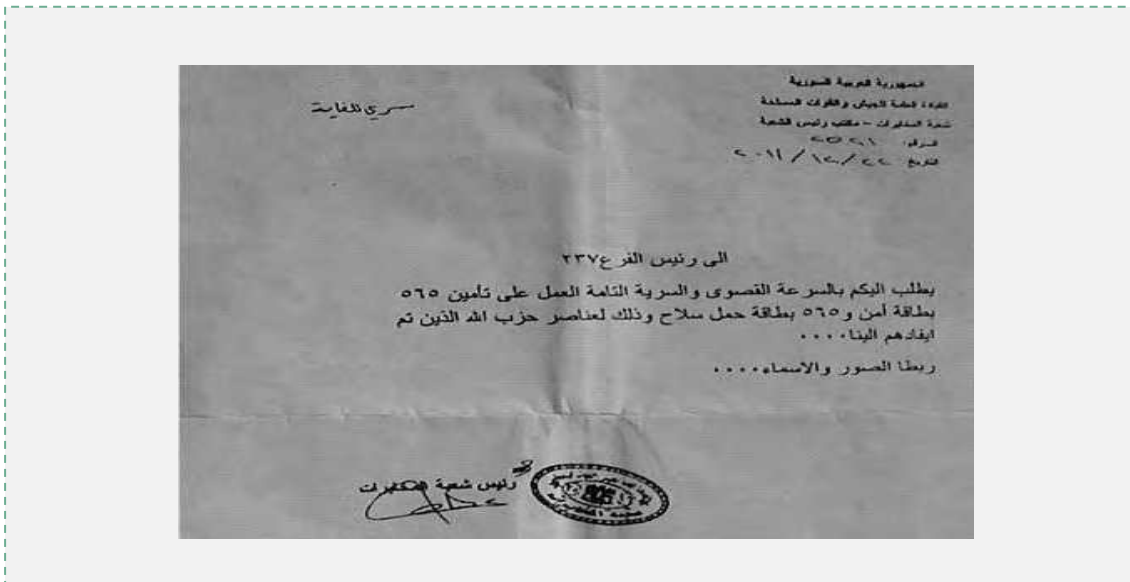 الجمهورية العربية السورية
القيادة العامة للجيش والقوات المسلحة
شعبة المخابرات - مكتب رئيس الشعبة
الرقم: ٢٥٢٦
التاريخ ٢٢/١٢/٢٠١١
سري للغاية
الى رئيس الفرع ٢٣٧
يطلب اليكم بالسرعة القصوى والسرية التامة العمل على تأمين ٥٦٥
بطاقة أمن و ٥٦٥ بطاقة حمل سلاح وذلك لعناصر حزب الله الذين تم
ايفادهم الينا٠٠٠٠
ربطا الصور والاسماء٠٠٠٠
رئيس شعبة المخابرات